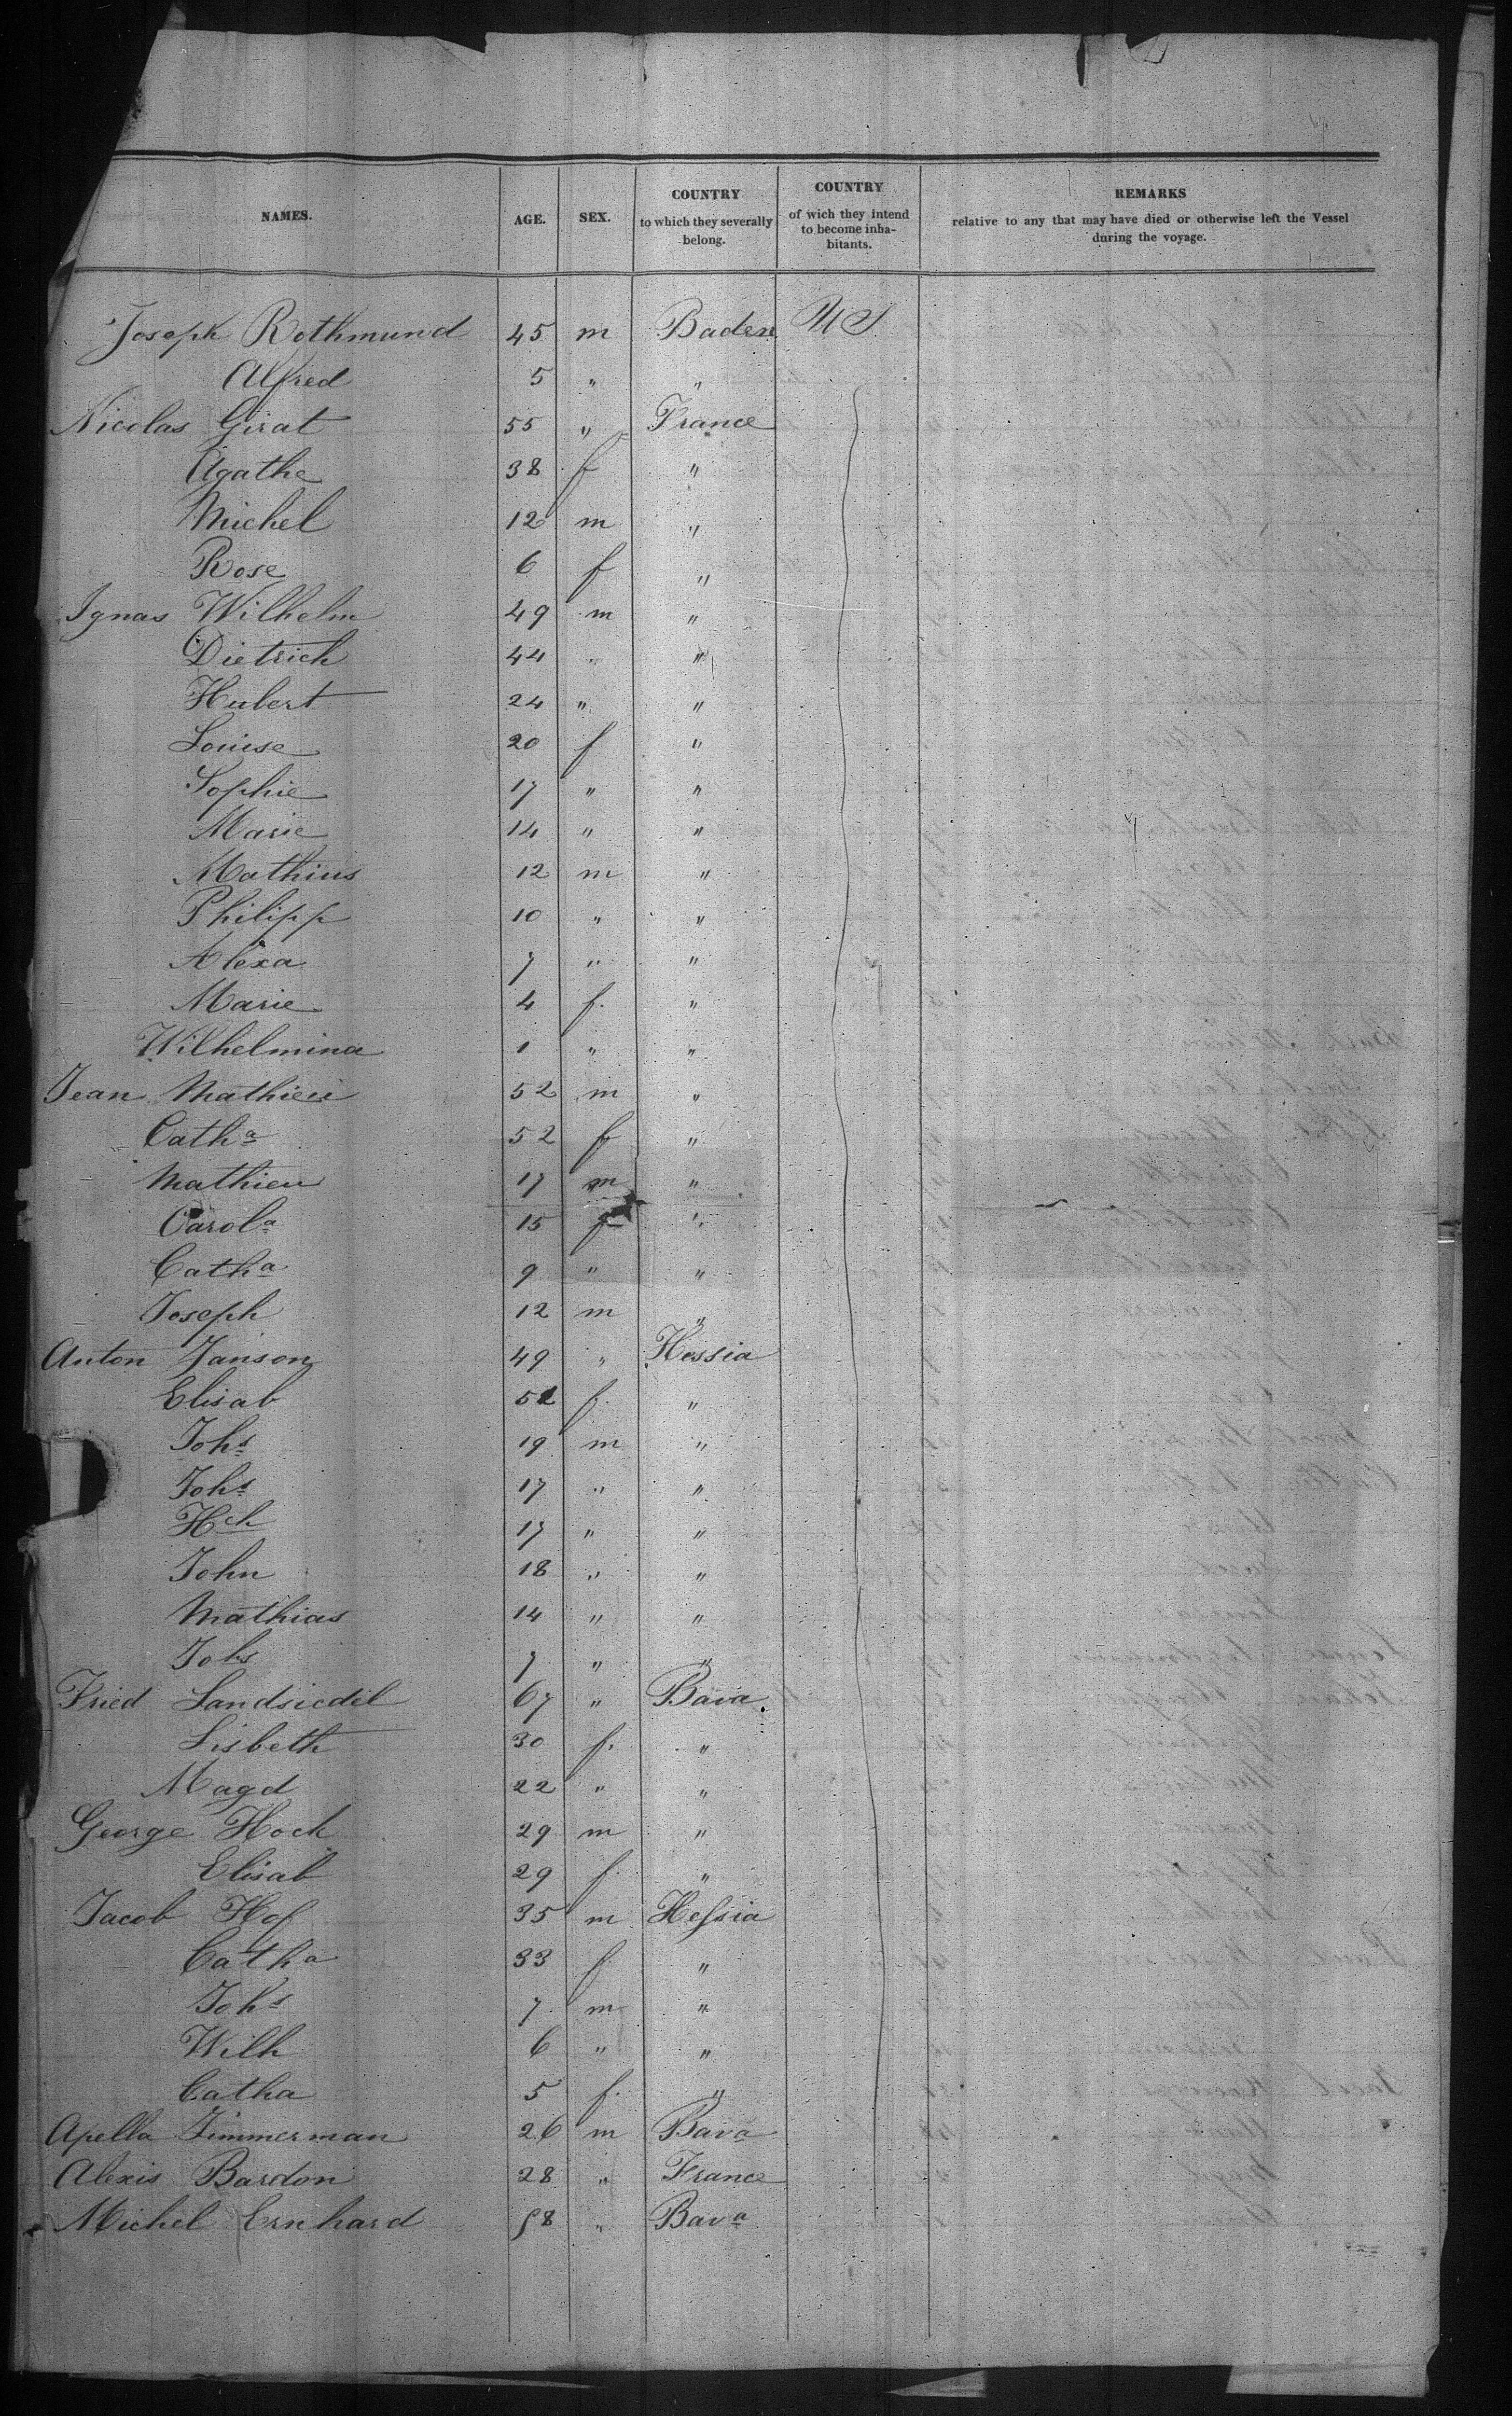 NAMES. AGE. SEX. COUNTRY to which they severally belong. COUNTRY of wich they intend to become inhabitants. REMARKS relative to any that may have died or otherwise left the Vessel during the voyage.
Joseph Rothmund 45 m Baden U S
Alfred 5 " "
Nicolas Girat 55 " France
Agathe 38 f "
Michel 12 m "
Rose 6 f "
Ignas Wilhelm 49 m "
Dietrich 44 " "
Hubert 24 " "
Louise 20 f "
Sophie 17 " "
Marie 14 " "
Mathius 12 m "
Philipp 10 " "
Alexa 7 " "
Marie 4 f. "
Wilhelmina 1 " "
Jean Mathieu 52 m "
Catha 52 f "
Mathieu 17 m "
Carola 15 f "
Catha 9 " "
Joseph 12 m "
Anton Janson 49 " Hessia
Elisab 52 f. "
Johs 19 m "
Johs 17 " "
Hch 17 " "
John 18 " "
Mathias 14 " "
Johs 7 " "
Fried Landsiedel 67 " Bava.
Lisbeth 30 f. "
Magd 22 " "
George Hock 29 m "
Elisab 29 f. "
Jacob Hof 35 m Hessia
Catha 33 f "
Johs 7 m "
Wilh 6 " "
Catha 5 f. "
Apella Zimmerman 26 m Bava
Alexis Bardon 28 " France
Michel Ernhard 58 " Bava